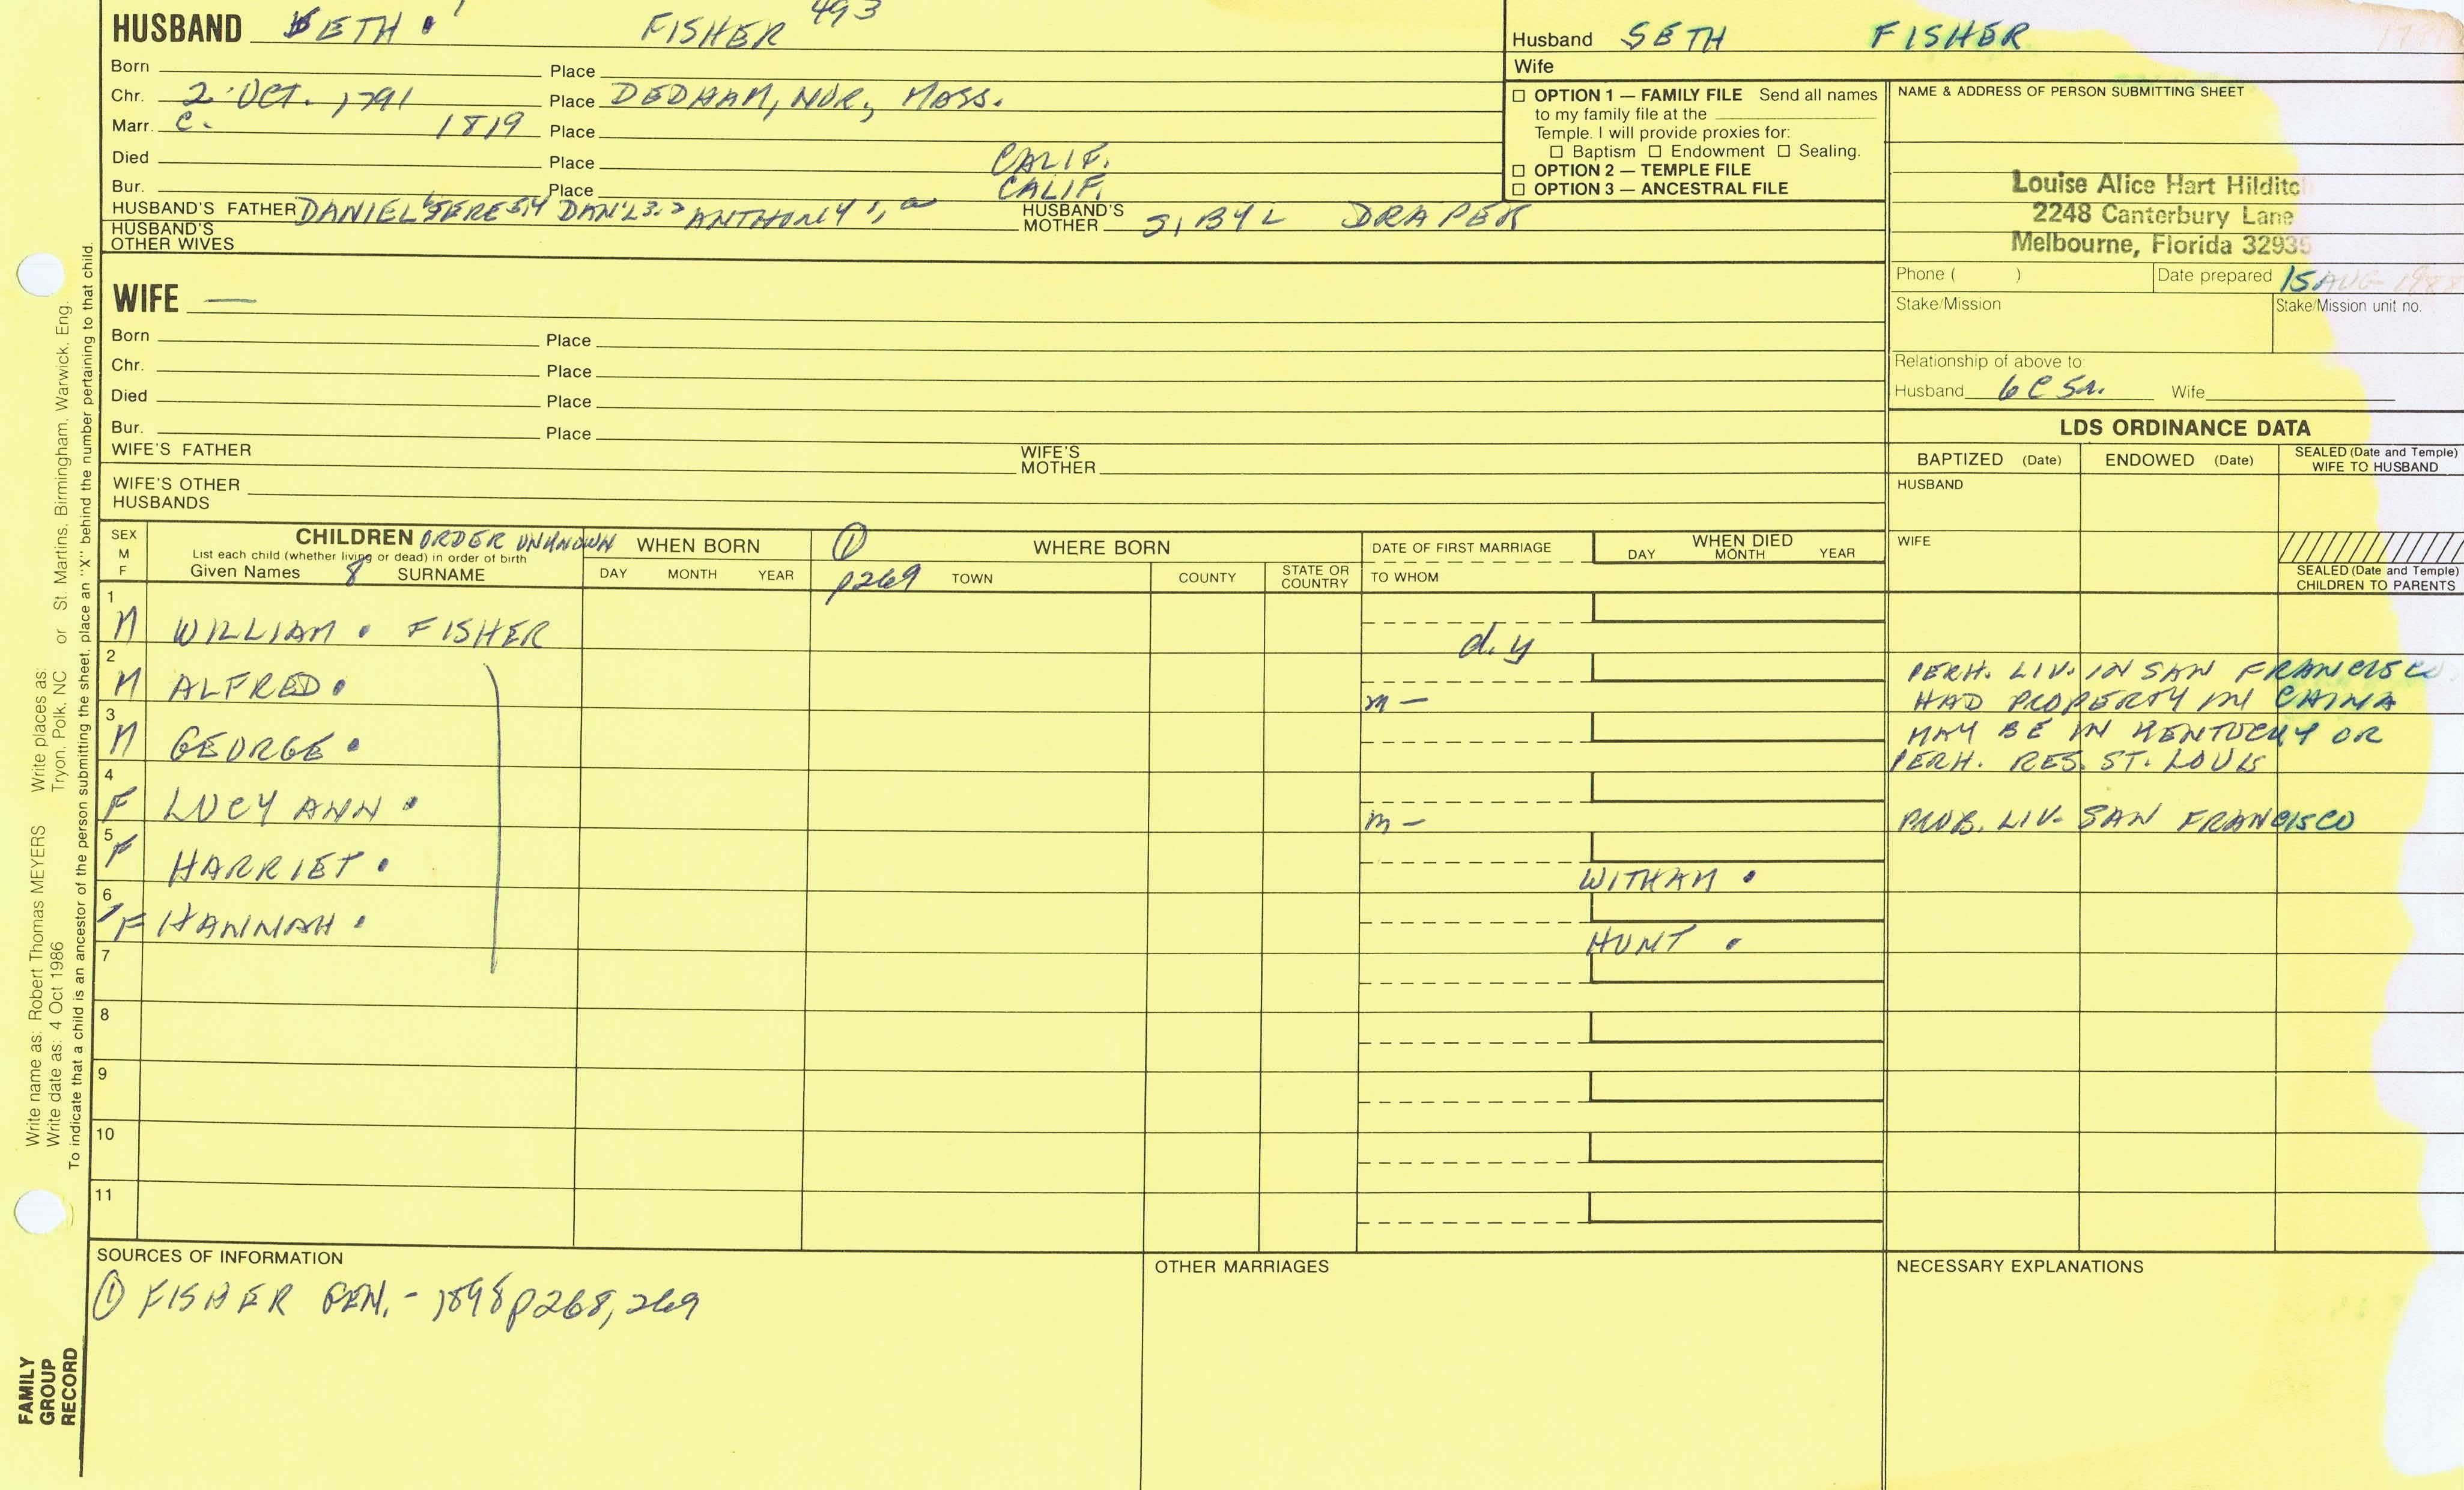 HUSBAND SETH • FISHER 493
Born Place
Chr. 2 OCT. 1791 Place DEDHAM, NOR, MASS.
Marr. c. 1819 Place
Died Place CALIF.
Bur. Place CALIF.
HUSBAND'S FATHER DANIEL DAN'L ANTHONY HUSBAND'S MOTHER SIBYL DRAPER
HUSBAND'S OTHER WIVES
Husband SETH FISHER
Wife
☐ OPTION 1 — FAMILY FILE Send all names
to my family file at the
Temple. I will provide proxies for:
☐ Baptism ☐ Endowment ☐ Sealing.
☐ OPTION 2 — TEMPLE FILE
☐ OPTION 3 — ANCESTRAL FILE
NAME & ADDRESS OF PERSON SUBMITTING SHEET
Louise Alice Hart Hilditc
2248 Canterbury Lane
Melbourne, Florida 32935
Phone ( ) Date prepared 15 AUG 198
Stake/Mission Stake/Mission unit no.
Relationship of above to:
Husband 6C 5R. Wife
WIFE —
Born Place
Chr. Place
Died Place
Bur. Place
WIFE'S FATHER WIFE'S MOTHER
WIFE'S OTHER HUSBANDS
LDS ORDINANCE DATA
BAPTIZED (Date) ENDOWED (Date) SEALED (Date and Temple) WIFE TO HUSBAND
HUSBAND
WIFE
SEALED (Date and Temple) CHILDREN TO PARENTS
SEX M F
CHILDREN ORDER UNKNOWN
List each child (whether living or dead) in order of birth
Given Names 8 SURNAME
WHEN BORN
DAY MONTH YEAR
① WHERE BORN
p269 TOWN COUNTY STATE OR COUNTRY
DATE OF FIRST MARRIAGE
TO WHOM
WHEN DIED
DAY MONTH YEAR
1 M WILLIAM • FISHER d.y
2 M ALFRED • m — PERH. LIV. IN SAN FRANCISCO
HAD PROPERTY IN CHINA
3 M GEORGE • MAY BE IN KENTUCKY OR
PERH. RES. ST. LOUIS
4 F LUCY ANN • m — PROB. LIV. SAN FRANCISCO
5 F HARRIET • WITHAM •
6 F HANNAH • HUNT •
7
8
9
10
11
SOURCES OF INFORMATION
① FISHER GEN. - 1898 p268, 269
OTHER MARRIAGES
NECESSARY EXPLANATIONS
Write name as: Robert Thomas MEYERS Write places as: St. Martins, Birmingham, Warwick, Eng.
Write date as: 4 Oct 1986 Tryon, Polk, NC or
To indicate that a child is an ancestor of the person submitting the sheet, place an "X" behind the number pertaining to that child.
FAMILY
GROUP
RECORD